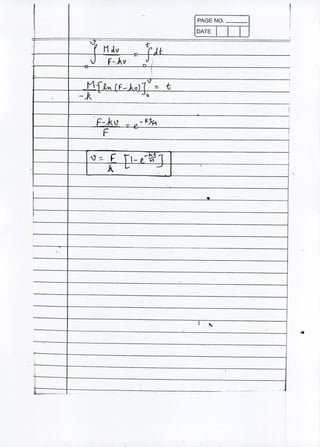 PAGE NO.
DATE
∫₀ᵛ M dv / F-kv = ∫₀ᵗ dt
M/-k [ln (F-kv)]₀ᵛ = t
F-kv / F = e^(-kt/M)
v = F/k [1-e^(-kt/M)]